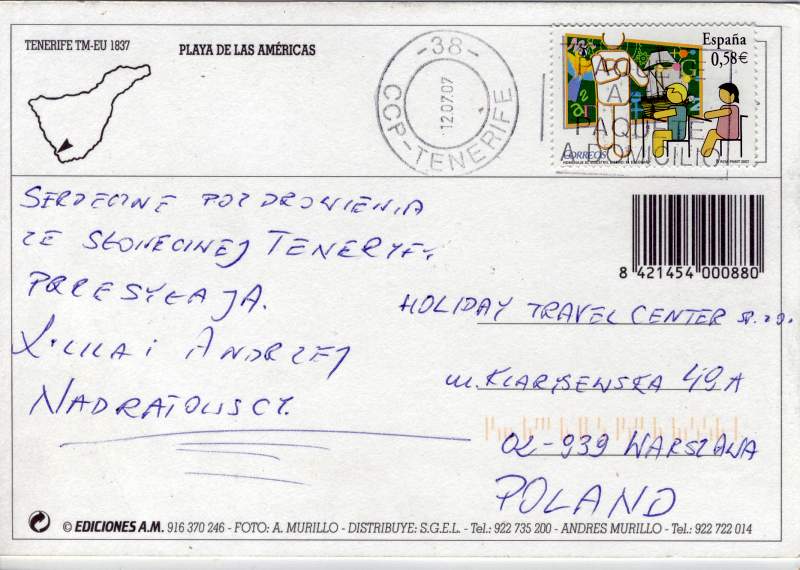 TENERIFE TM-EU 1837
PLAYA DE LAS AMÉRICAS
-38-
12.07.07
CCP-TENERIFE
España
0,58€
PAQUETE
A DOMICILIO
CORREOS
SERDECZNE POZDROWIENIA
ZE SŁONECZNEJ TENERYFY
PRZESYŁAJĄ.
I ANDRZEJ
8 421454 000880
HOLIDAY TRAVEL CENTER
ul. KLARYSEWSKA 49A
02-939 WARSZAWA
POLAND
© EDICIONES A.M. 916 370 246 - FOTO: A. MURILLO - DISTRIBUYE: S.G.E.L. - Tel.: 922 735 200 - ANDRES MURILLO - Tel.: 922 722 014